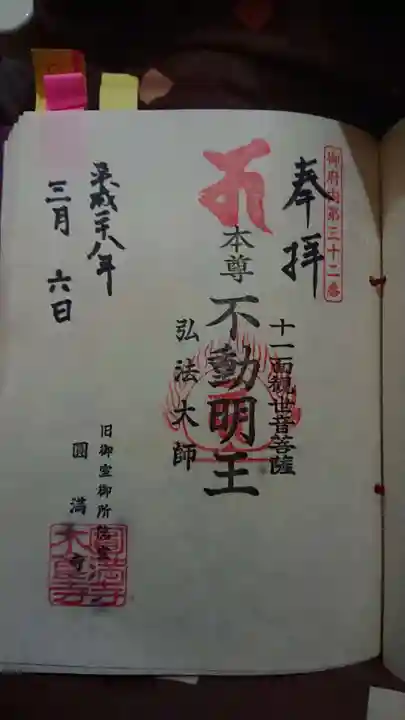 御府内第三十二番
奉拝
十一面観世音菩薩
本尊 不動明王
弘法大師
平成二十八年
三月 六日
旧御室御所
圓満寺